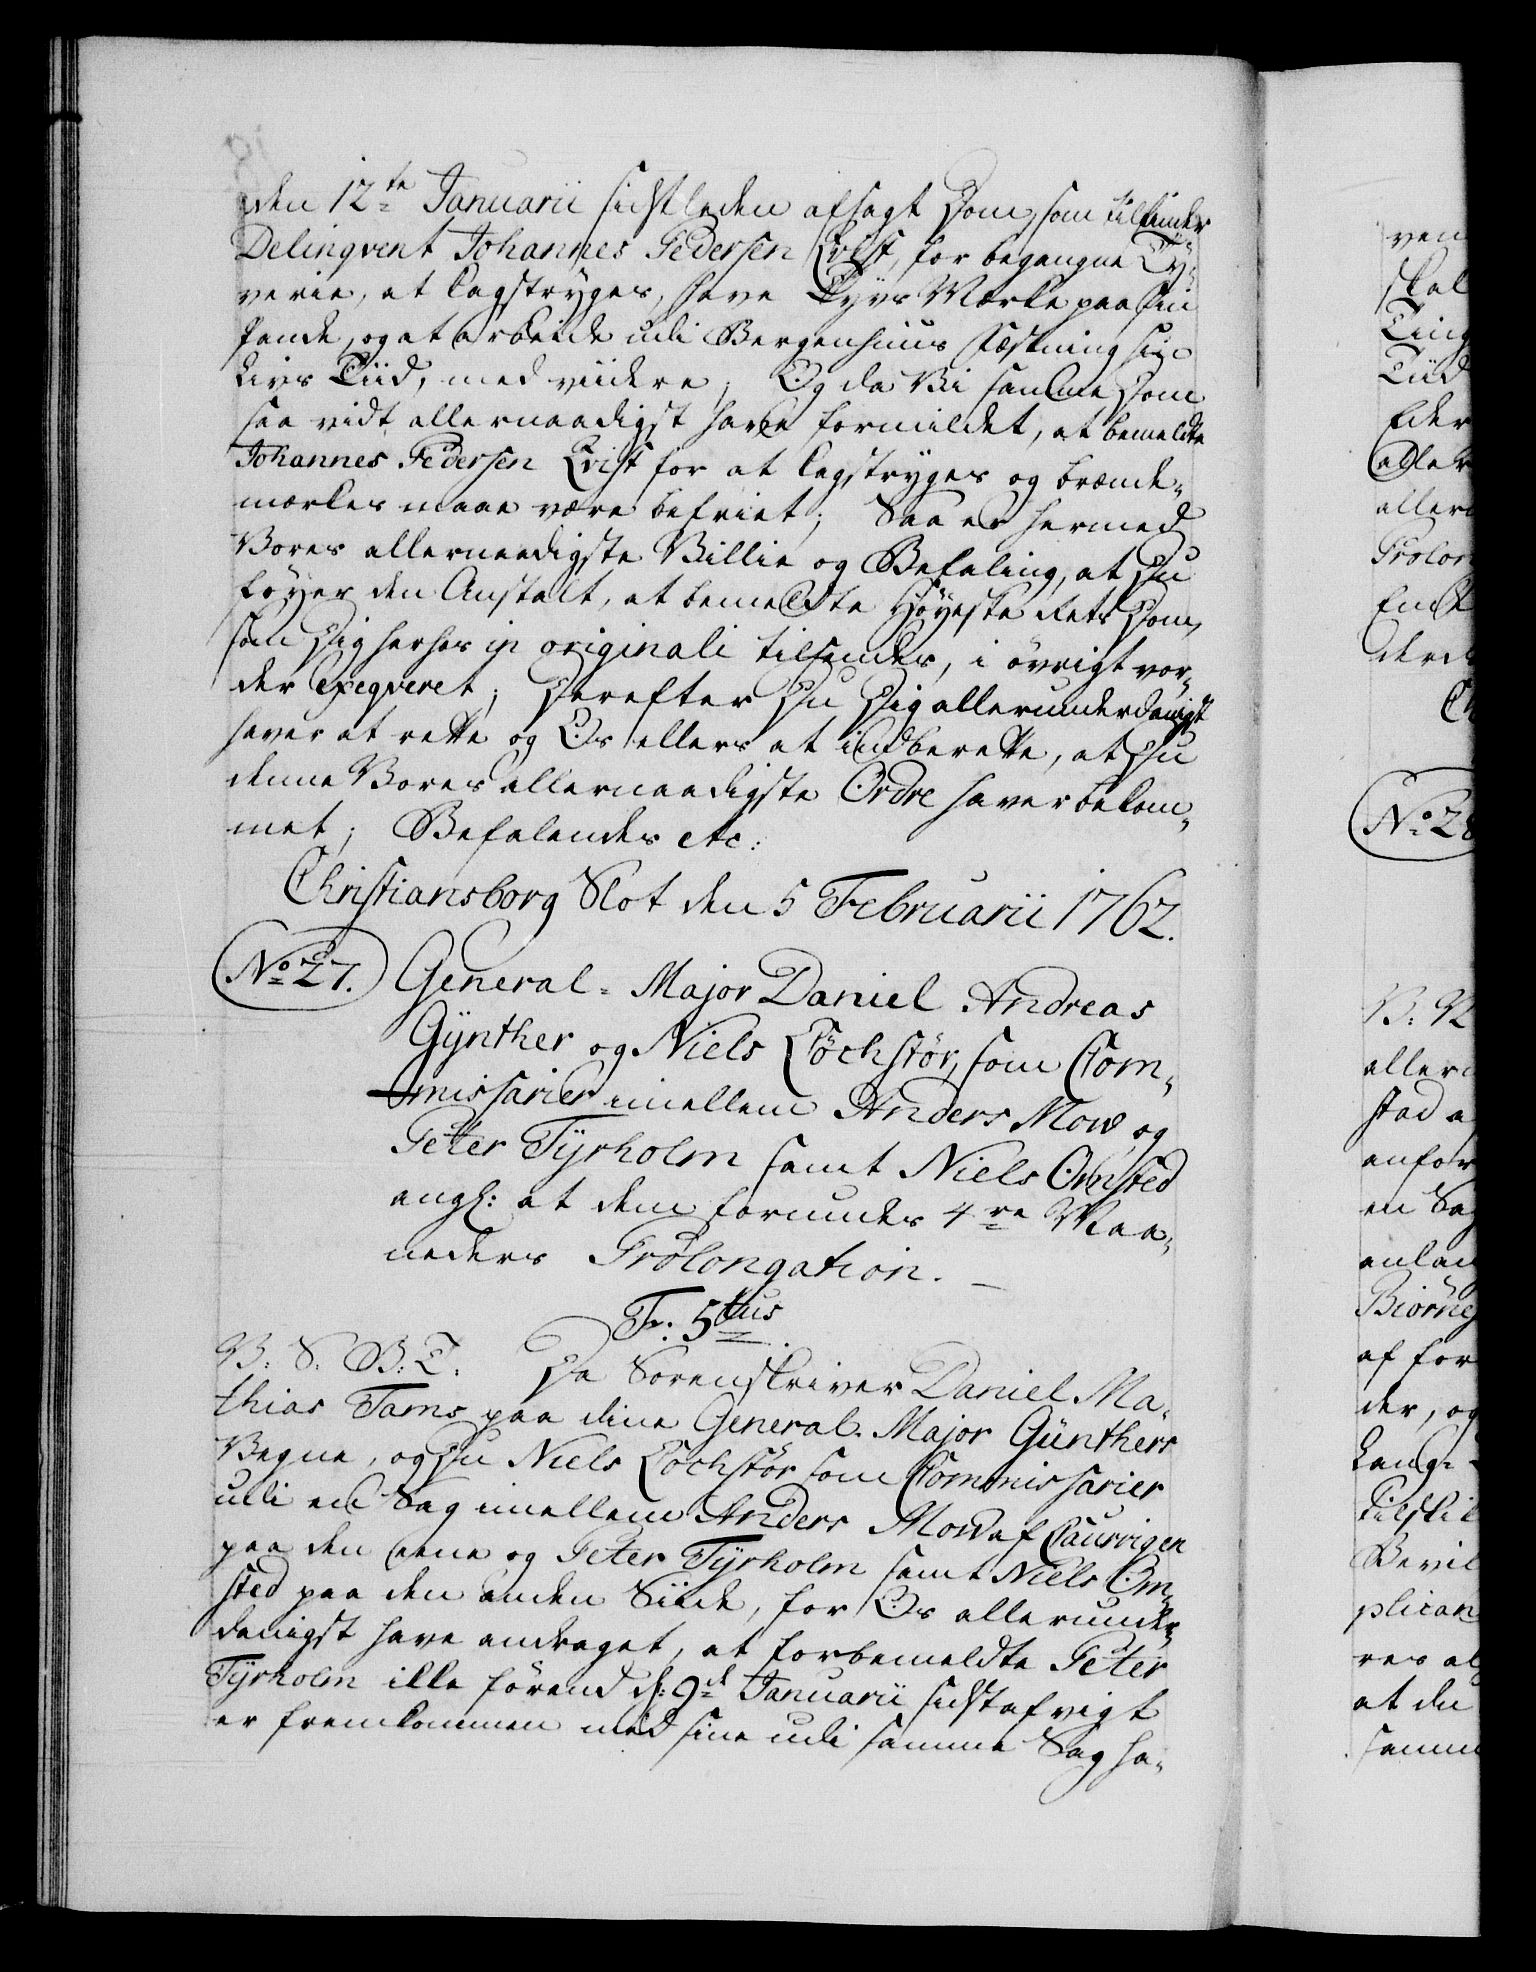 den 12te Januarii sidstleden afsagt Dom, som tilfinder
Delinqvent Johannes Pedersen Qvist, for begangne Ty-
verie, at Cagstryges, have Tyvs Mærke paa sin
Pande, og at arbeide udi Bergenhuus Fæstning sin
Livs Tiid, med viidere; Og da Vi samme Dom
saa vidt allernaadigst have formildet, at bemeldte
Johannes Pedersen Qvist for at Cagstryges og brænde-
mærkes maae være befriet; Saa er hermed
Vores allernaadigste Villie og Befaling, at Du
föyer den Anstalt, at bemeldte Höyeste Rets Dom,
som Dig herhos in originali tilsendes, i övrigt vor-
der Exeqveret; Derefter Du Dig allerunderdanigst
haver at rette og Os ellers at indberette, at Du
denne Vores allernaadigste Ordre haver bekom-
met; Befalendes etc:
Christiansborg Slot den 5 Februarii 1762.
No 27. General-Major Daniel Andreas
Gÿnther og Niels Löchstör, som Com-
missarier imellem Anders Mow og
Peter Tÿrholm samt Niels Omsted
angl: at dem forundes 4re Maa-
neders Prolongation.
Fr: 5tus
V: S: G: T. Da Sorenskriver Daniel Ma-
thias Tams paa dine General-Major Günthers
Vegne, og Du Niels Löchstör som Commissarier
udi en Sag imellem Anders Mow af Laurvigen
paa den eene og Peter Tÿrholm samt Niels Om-
sted paa den anden Siide, for Os allerunder-
danigst have andraget, at forbemeldte Peter
Tÿrholm ikke förend d: 9de Januarii sidstafvigt
er fremkommen med sine udi samme Sag ha-
ven
skal
Ting
Tiid
Eder
eller
allern
Prolon
Em
derd
No 28
allern
stad a
anfor
en Sag
anlan
Biörne
af for
der, og
Lang-
tilskil
Bevil
plican
res al
at du
samm